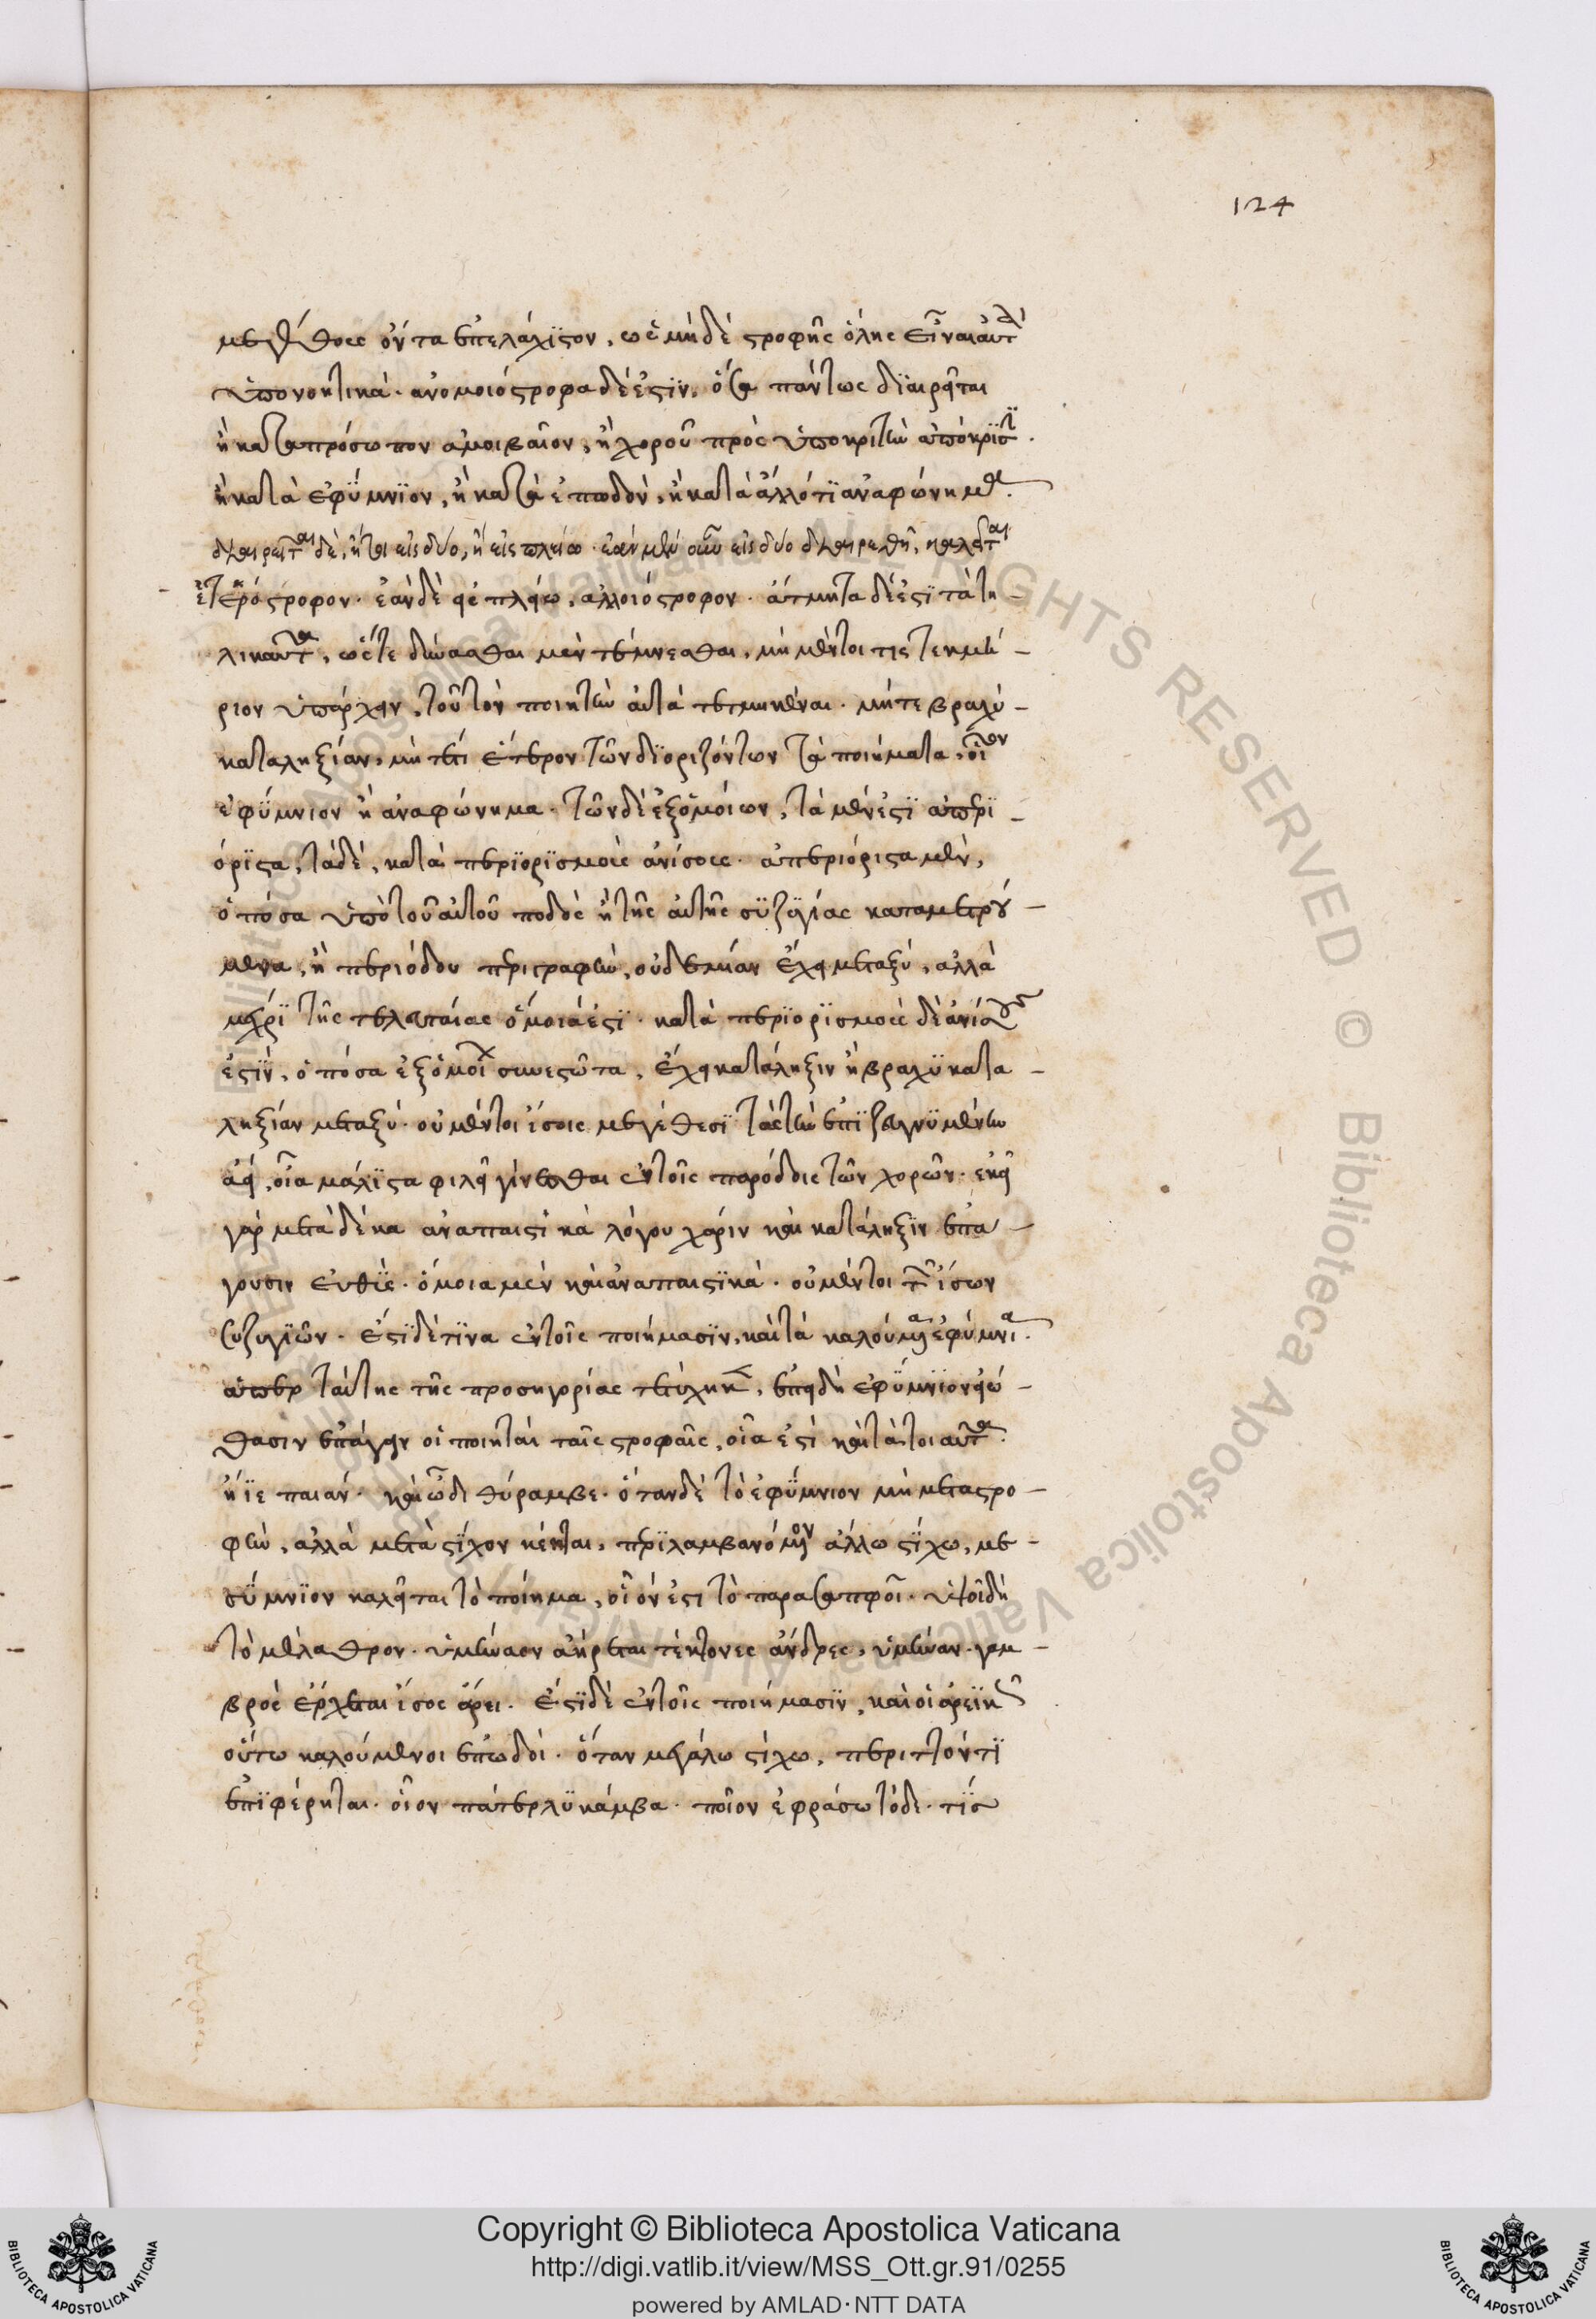 124
μεγέθους ὄντα ἐπ' ἐλάχιστον, ὡς μηδὲ στροφῆς ὅλης εἶναι αὐτὰ
ὑπονοητικά. ἀνομοιόστροφα δέ ἐστιν, ὅσα πάντως διαιρεῖται
ἢ κατὰ πρόσωπον ἀμοιβαῖον, ἢ χοροῦ πρὸς ὑποκριτὴν ἀπόκρισιν.
ἢ κατὰ ἐφύμνιον, ἢ κατὰ ἐπωδὸν, ἢ κατὰ ἄλλό τι ἀναφώνημα.
διαιρεῖται δὲ, ἤτοι εἰς δύο, ἢ εἰς πλείω. ἐὰν μὲν οὖν εἰς δύο διαιρεθῆ, καλεῖται
ἑτερόστροφον. ἐὰν δὲ εἰς πλείω, ἀλλοιόστροφον. ἄτμητα δέ ἐστι τὰ τη-
λικαῦτα, ὥστε δύνασθαι μὲν τέμνεσθαι, μὴ μέντοι τις τεκμή-
ριον ὑπάρχειν, τοῦ τὸν ποιητὴν αὐτὰ τετμηκέναι. μήτε βραχυ-
καταληξίαν, μή τέ τι ἕτερον τῶν διοριζόντων τὰ ποιήματα, οἷον
ἐφύμνιον ἢ ἀναφώνημα. τῶν δὲ ἐξ ὁμοίων, τὰ μέν ἐστι ἀπερι-
όριστα, τὰ δὲ, κατὰ περιορισμοὺς ἀνίσους. ἀπεριόριστα μὲν,
ὁπόσα ὑπὸ τοῦ αὐτοῦ ποδὸς ἢ τῆς αὐτῆς συζυγίας καταμετρού-
μενα, ἢ περιόδου περιγραφὴν, οὐδεμίαν ἔχει μεταξὺ, ἀλλὰ
μέχρι τῆς τελευταίας ὅμοιά ἐστι. κατὰ περιορισμοὺς δὲ ἀνίσους
ἐστὶν, ὁπόσα ἐξ ὁμοίων συνεστῶτα, ἔχει κατάληξιν ἢ βραχυκατα-
ληξίαν μεταξύ. οὐ μέντοι ἴσοις μεγέθεσι τὰς τὴν ἐπιζευγνυμένην
ἀεὶ, οἷα μάλιστα φιλεῖ γίνεσθαι ἐν τοῖς παρόδοις τῶν χορῶν. ἐκεῖ
γὰρ μετὰ δέκα ἀναπαιστικὰ λόγου χάριν καὶ κατάληξιν ἐπά-
γουσιν εὐθύς. ὅμοια μὲν καὶ ἀναπαιστικά. οὐ μέντοι τῶν ἴσων
συζυγιῶν. ἔστι δέ τινα ἐν τοῖς ποιήμασιν, καὶ τὰ καλούμενα ἐφύμνια.
ἅπερ ταύτης τῆς προσηγορίας τετύχηκεν, ἐπειδὴ ἐφύμνιον εἰώ-
θασιν ἐπάγειν οἱ ποιηταὶ ταῖς στροφαῖς, οἷα ἐστὶ καὶ τὰ τοιαῦτα.
ἤϊε παιάν. καὶ ὦ διθύραμβε. ὅταν δὲ τὸ ἐφύμνιον μὴ μετὰ στρο-
φὴν, ἀλλὰ μετὰ στίχον κέηται, περιλαμβανόμενον ἄλλω στίχω, με-
σύμνιον καλεῖται τὸ ποίημα, οἷόν ἐστι τὸ παρὰ Σαπφοῖ. ὑψοῖ δὴ
τὸ μέλαθρον. ὑμήναον ἀήρεται τέκτονες ἄνδρες, ὑμήναν. γαμ-
βρὸς ἔρχεται ἶσος ἄρει. ἔστι δὲ ἐν τοῖς ποιήμασιν, καὶ οἱ ἀρεϊκῶς
οὕτω καλούμενοι ἐπωδοί. ὅταν μεγάλω στίχω, περιττόν τι
ἐπιφέρηται. οἷον πάτερ λυκάμβα. ποῖον ἐφράσω τόδε. τίς
Copyright © Biblioteca Apostolica Vaticana
http://digi.vatlib.it/view/MSS_Ott.gr.91/0255
powered by AMLAD·NTT DATA